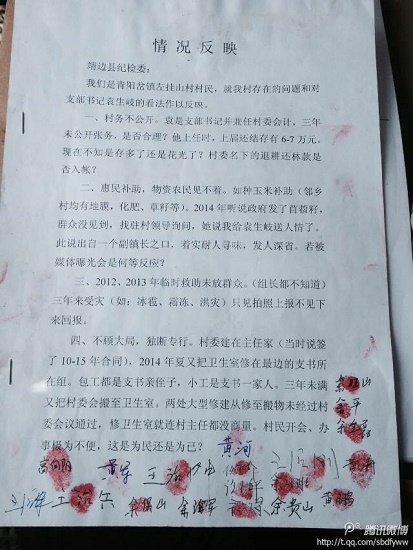 情况反映
靖边县纪检委：
我们是青阳岔镇左挂山村村民，就我村存在的问题和对
支部书记袁生岐的看法作以反映。
一、村务不公开。袁是支部书记并兼任村委会计，三年
未公开张务，是否合理？他上任时，上届还结存有 6-7 万元。
现在不知是存多了还是花光了？村委名下的退耕还林款是
否入帐？
二、惠民补助，物资农民见不着。如种玉米补助（邻乡
村均有地膜，化肥、草籽等）。2014 年听说政府发了苜蓿籽，
群众没见到，找驻村领导询问，她说我给袁生岐送人情了。
此说出自一个副镇长之口，着实耐人寻味，发人深省。若被
媒体曝光会是何等反应？
三、2012、2013 年临时救助未放群众。（组长都不知道）
三年来受灾（如：冰雹、霜冻、洪灾）只见拍照上报不见下
来回报。
四、不顾大局，独断专行。村委建在主任家（当时说签
了 10-15 年合同），2014 年夏又把卫生室修在最边的支书所
在组。包工都是支书亲侄子，小工是支书一家人。三年未满
又把村委会搬至卫生室。两处大型修建从修至搬物未经过村
委会议通过，修卫生室就连村主任都没商量。村民开会、办
事极为不便，这是为民还是为己？
黄河
腾讯微博
http://t.qq.com/sbdfyww